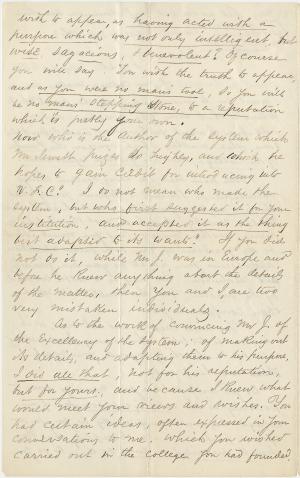 wish to appear, as having acted with a
purpose which was not only intelligent, but
wise, sagacious, & benevolent? Of course
you will say You wish the truth to appear,
and as you were no man's tool, so you will
be no man's stepping stone, to a reputation
which is justly your own.
Now who is the Author of the system which
Mr. prizes so highly, and which he
hopes to gain credit for introducing into
V. F. C? I do not mean who made the
system, but who first suggested it for your
institution, and accepted it as the thing
best adapted to its wants? If you did
not do it, while Mr. J. was in Europe and
before he knew anything about the details
of the matter, then You and I are two
very mistaken individuals.
As to the work of convincing Mr. J. of
the Excellency of the System; of making out
its details, and adapting them to his purpose,
I did all that, not for his reputation,
but for yours, and because I knew what
would meet your views and wishes. You
had certain ideas, often expressed in your
conversations to me. which you wished
carried out in the college you had founded